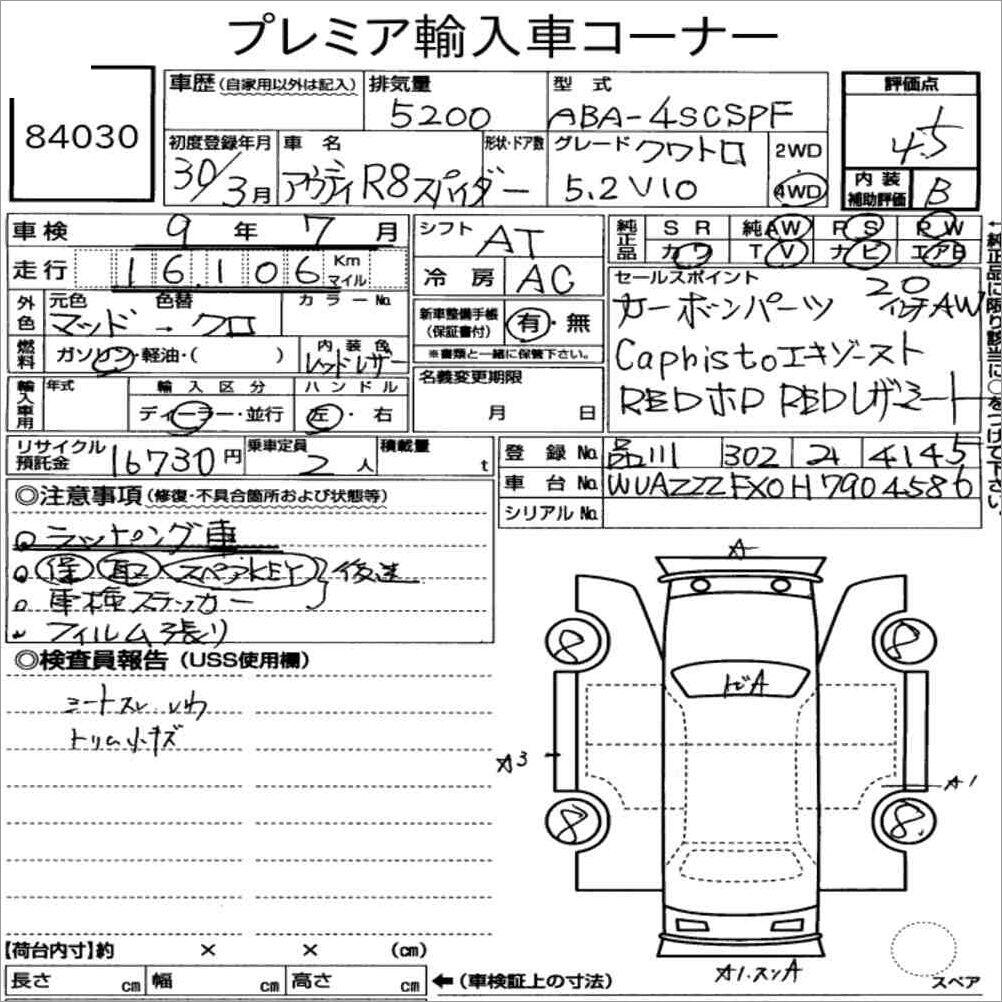 プレミア輸入車コーナー
84030
車歴 (自家用以外は記入) 排気量 型式 評価点
5200 ABA-4SCSPF 4.5
初度登録年月 車名 形状・ドア数 グレード クワトロ 2WD
30/3月 アウディR8スパイダー 5.2 V10 4WD
内装補助評価 B
車検 9年7月
走行 16,106 Km マイル
シフト AT
冷房 AC
純正品 SR 純AW PS PW
カワ TV ナビ エアB
外色 元色 色替 カラーNo.
マッド → クロ
燃料 ガソリン・軽油・( ) 内装色 レッドレザー
新車整備手帳(保証書付) 有・無
※書類と一緒に保管下さい。
セールスポイント
カーボンパーツ 20インチAW
Caphistoエキゾースト
REDホロ REDレザーシート
←純正品に限り該当に○をつけて下さい。
輸入車用 年式 輸入区分 ハンドル
ディーラー・並行 左・右
名義変更期限
月 日
リサイクル預託金 16730円 乗車定員 2人 積載量 t
登録No. 品川 302 4145
車台No. WUAZZZFX0H7904586
シリアルNo.
◎注意事項 (修復・不具合箇所および状態等)
ラッピング車
保 取 スペアKEY 後送
車検ステッカー
フィルム張り
◎検査員報告 (USS使用欄)
シートスレ、シワ
トリム小キズ
A
8 8
トビA
A3 A1
8 8
A1.スリA
スペア
【荷台内寸】約 × × (cm)
長さ cm 幅 cm 高さ cm ←(車検証上の寸法)